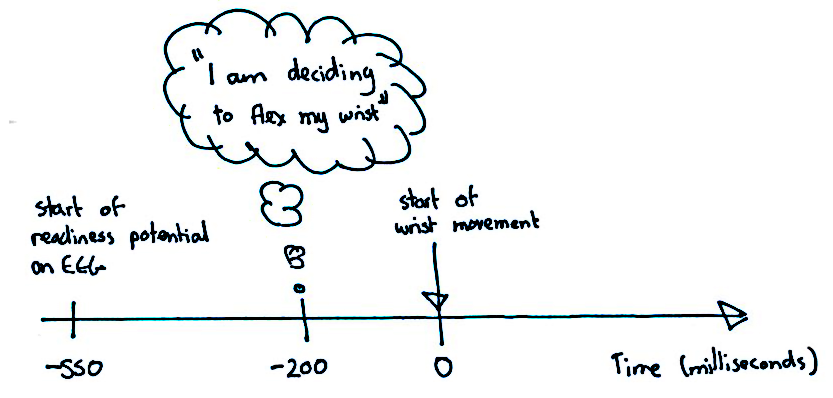 "I am deciding
to flex my wrist"
start of
readiness potential
on EEG
start of
wrist movement
-550
-200
0
Time (milliseconds)